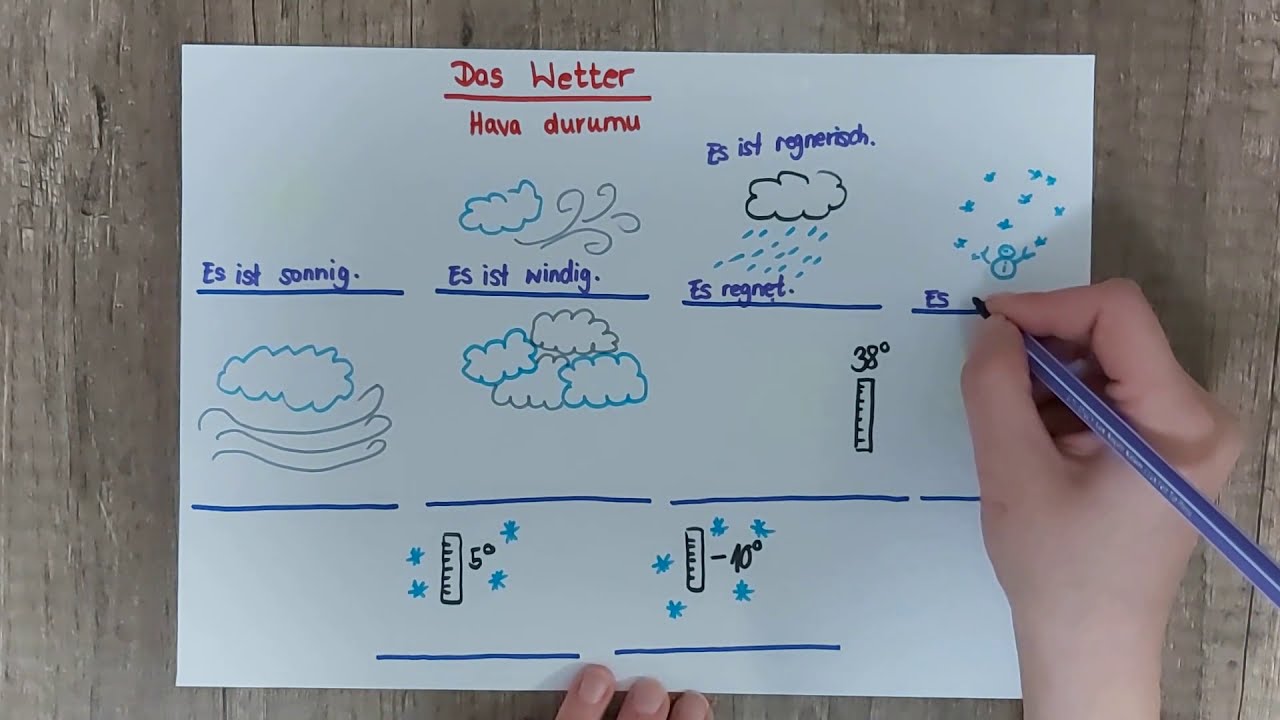 Das Wetter
Hava durumu
Es ist regnerisch.
Es ist sonnig.
Es ist windig.
Es regnet.
Es
38°
5°
-10°